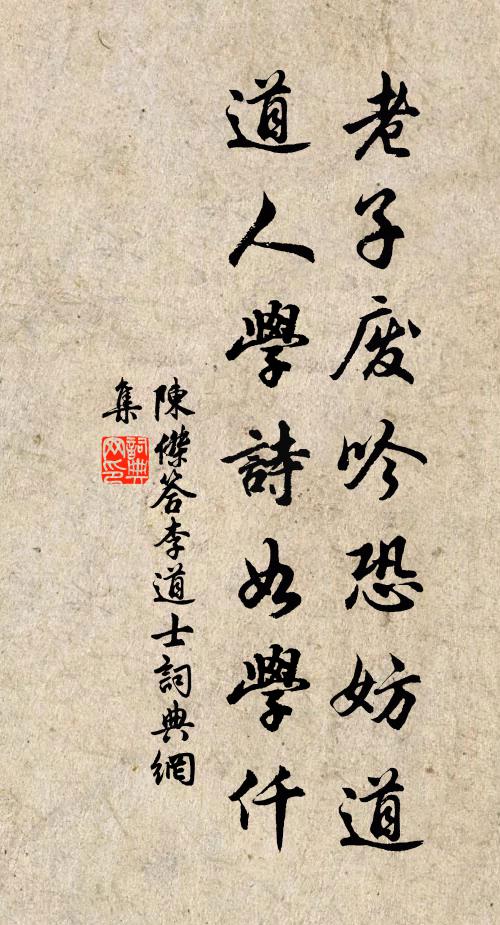 老子廢吟恐妨道
道人學詩如學仟
陳傑答李道士詞典網
集
詞典網印